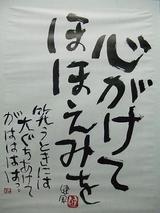 心がけて
ほほえみを
笑うときには
大ぐちあけて
がはははっ。